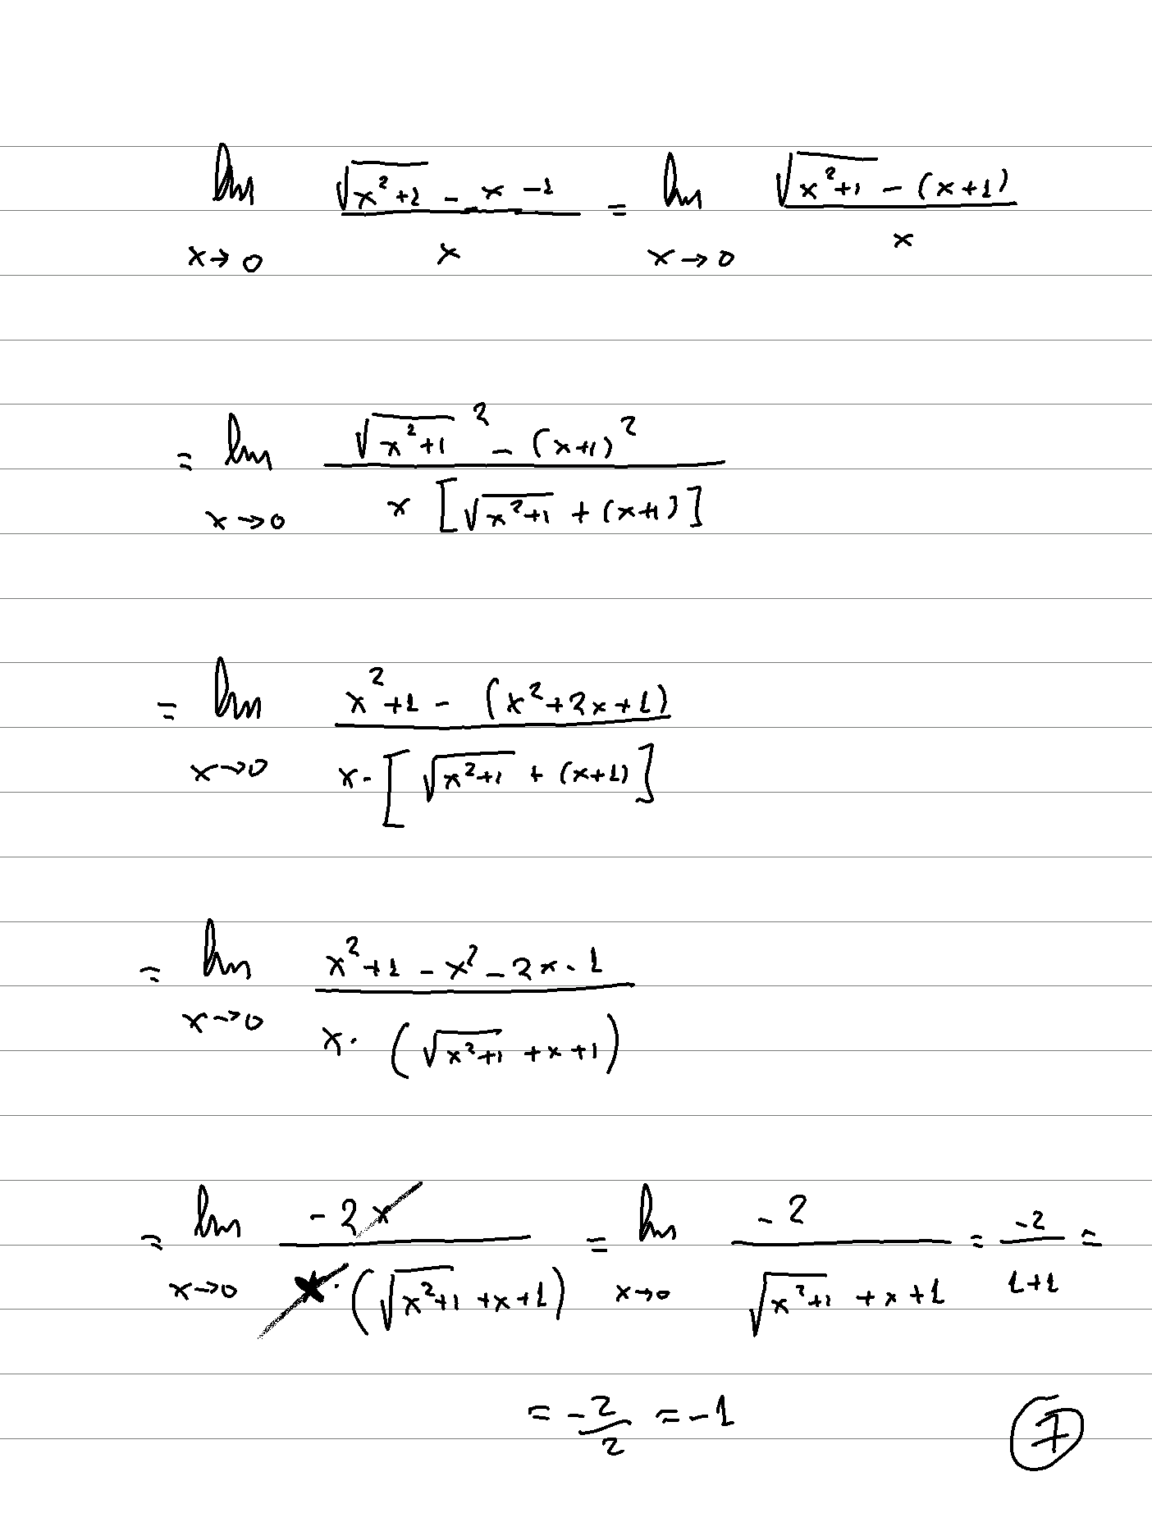 lim x→0 (√(x²+1) - x - 1)/x = lim x→0 (√(x²+1) - (x+1))/x
= lim x→0 (√(x²+1)² - (x+1)²)/(x [√(x²+1) + (x+1)])
= lim x→0 (x²+1 - (x²+2x+1))/(x·[√(x²+1) + (x+1)])
= lim x→0 (x²+1 - x² - 2x - 1)/(x·(√(x²+1) + x + 1))
= lim x→0 (-2x)/(x·(√(x²+1) + x + 1)) = lim x→0 (-2)/(√(x²+1) + x + 1) = (-2)/(1+1) =
= -2/2 = -1
7